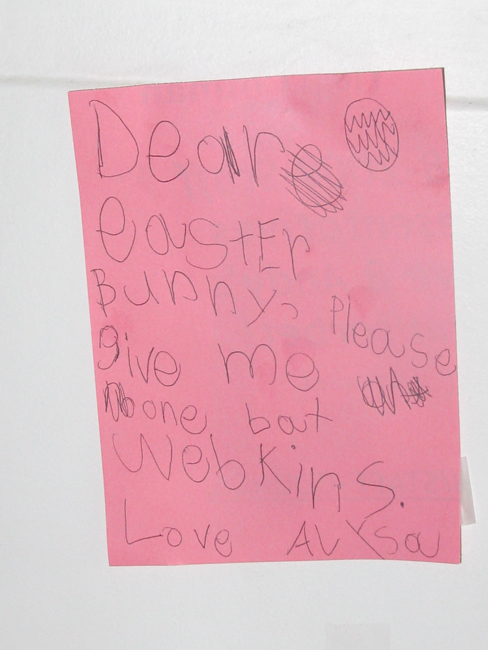 Dear
easTEr
Bunny, Please
give me
one bat
WebKinS.
Love ALYsa